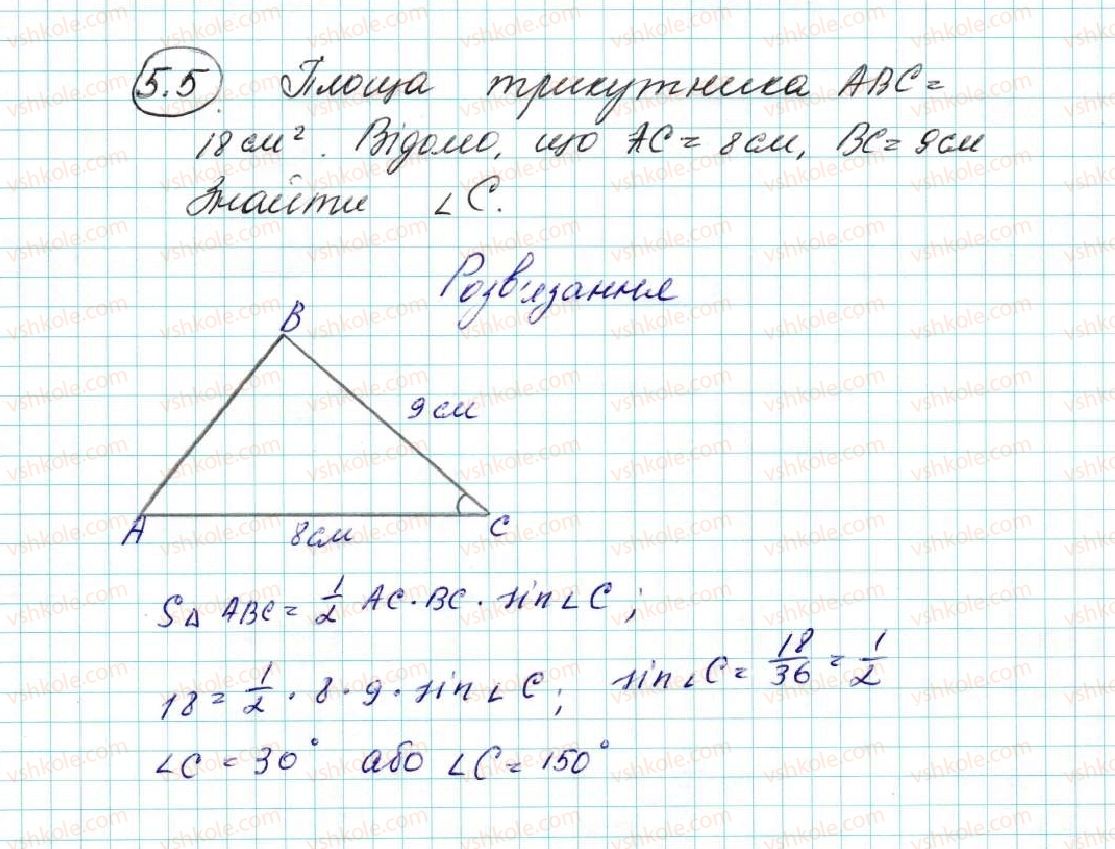 5.5 Площа трикутника ABC=
18 см². Відомо, що AC= 8 см, BC= 9 см
Знайти ∠C.
Розв'язання
B
9 см
A
8 см
C
S△ ABC = 1/2 AC · BC · sin∠C;
18 = 1/2 · 8 · 9 · sin∠C; sin∠C = 18/36 = 1/2
∠C = 30° або ∠C = 150°
vshkole.com